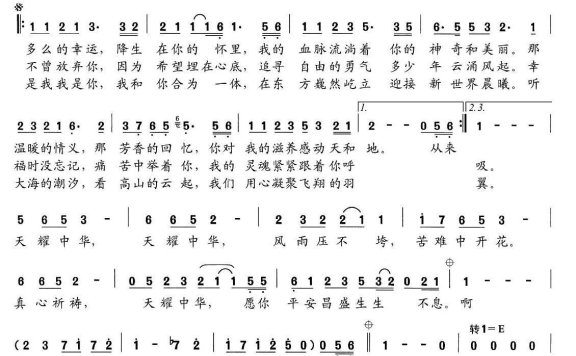 1 1 2 1 3· 3 2 2 1 2 1 1 1 6· 5 6 1 1 2 3 5· 3 5 6 5 5 3 2 2· 1
多么的幸运，降生在你的怀里，我的血脉流淌着你的神奇和美丽。那
不曾放弃你，因为希望埋在心底，追寻自由的勇气多少年云涌风起。幸
是我我是你，我和你合为一体，在东方巍然屹立迎接新世界晨曦。听
1. 2.3.
2 3 2 1 6· 2 3 7 6 5 5· 5 6 1 1 2 3 5 3 2 1 2 - - 0 5 6 1 - - -
温暖的情义，那芳香的回忆，你对我的滋养感动天和地。从来
福时没忘记，痛苦中举着你，我的灵魂紧紧跟着你呼吸。
大海的潮汐，看高山的云起，我们用心凝聚飞翔的羽翼。
5 6 5 3 - 6 6 5 2 - 2 3 2 2 1 1 7 6 5 3 -
天耀中华，天耀中华，风雨压不垮，苦难中开花。
6 6 5 2 - 0 5 2 3 2 1 1 5 5 6 1 2 3 5 3 2 0 2 1 1 - - -
真心祈祷，天耀中华，愿你平安昌盛生生不息。啊
转1=E
(2 3 7 1 7 2 1 - ♭7 2 1 7 1 2 5 0) 0 5 6 1 - - 0 0 0 0 0